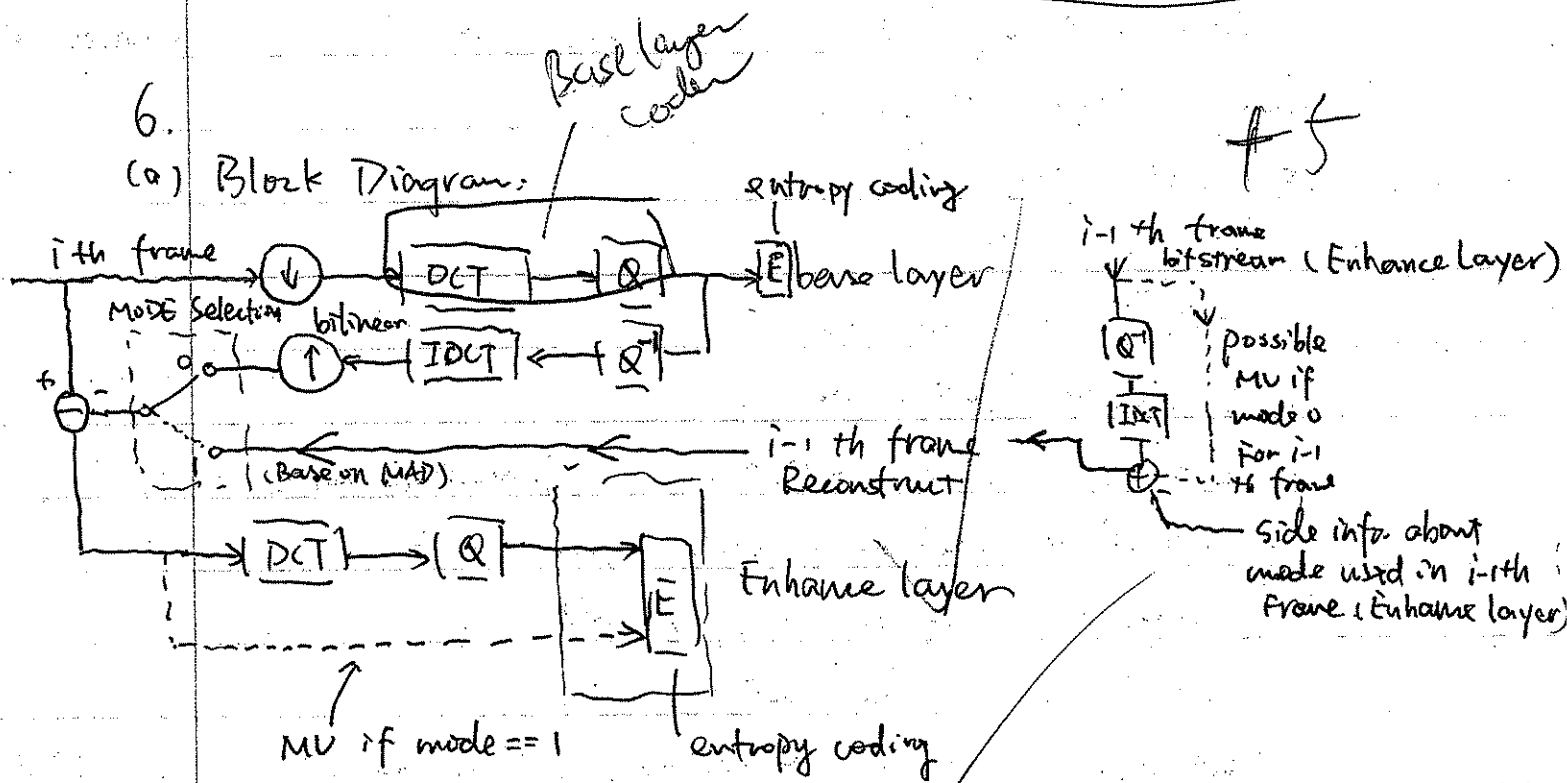 Base layer
coder
6.
+5
(a) Block Diagram:
entropy coding
i th frame
↓
DCT
Q
E
base layer
MODE Selection
bilinear
0
↑
IDCT
Q⁻¹
+
-
(Base on MAD)
i-1 th frame
Reconstruct
DCT
Q
E
Enhance layer
MV if mode == 1
entropy coding
i-1 th frame
bitstream (Enhance Layer)
Q⁻¹
IDCT
+
possible
MV if
mode 0
For i-1
th frame
side info. about
mode used in i-1th
Frame (Enhance layer)